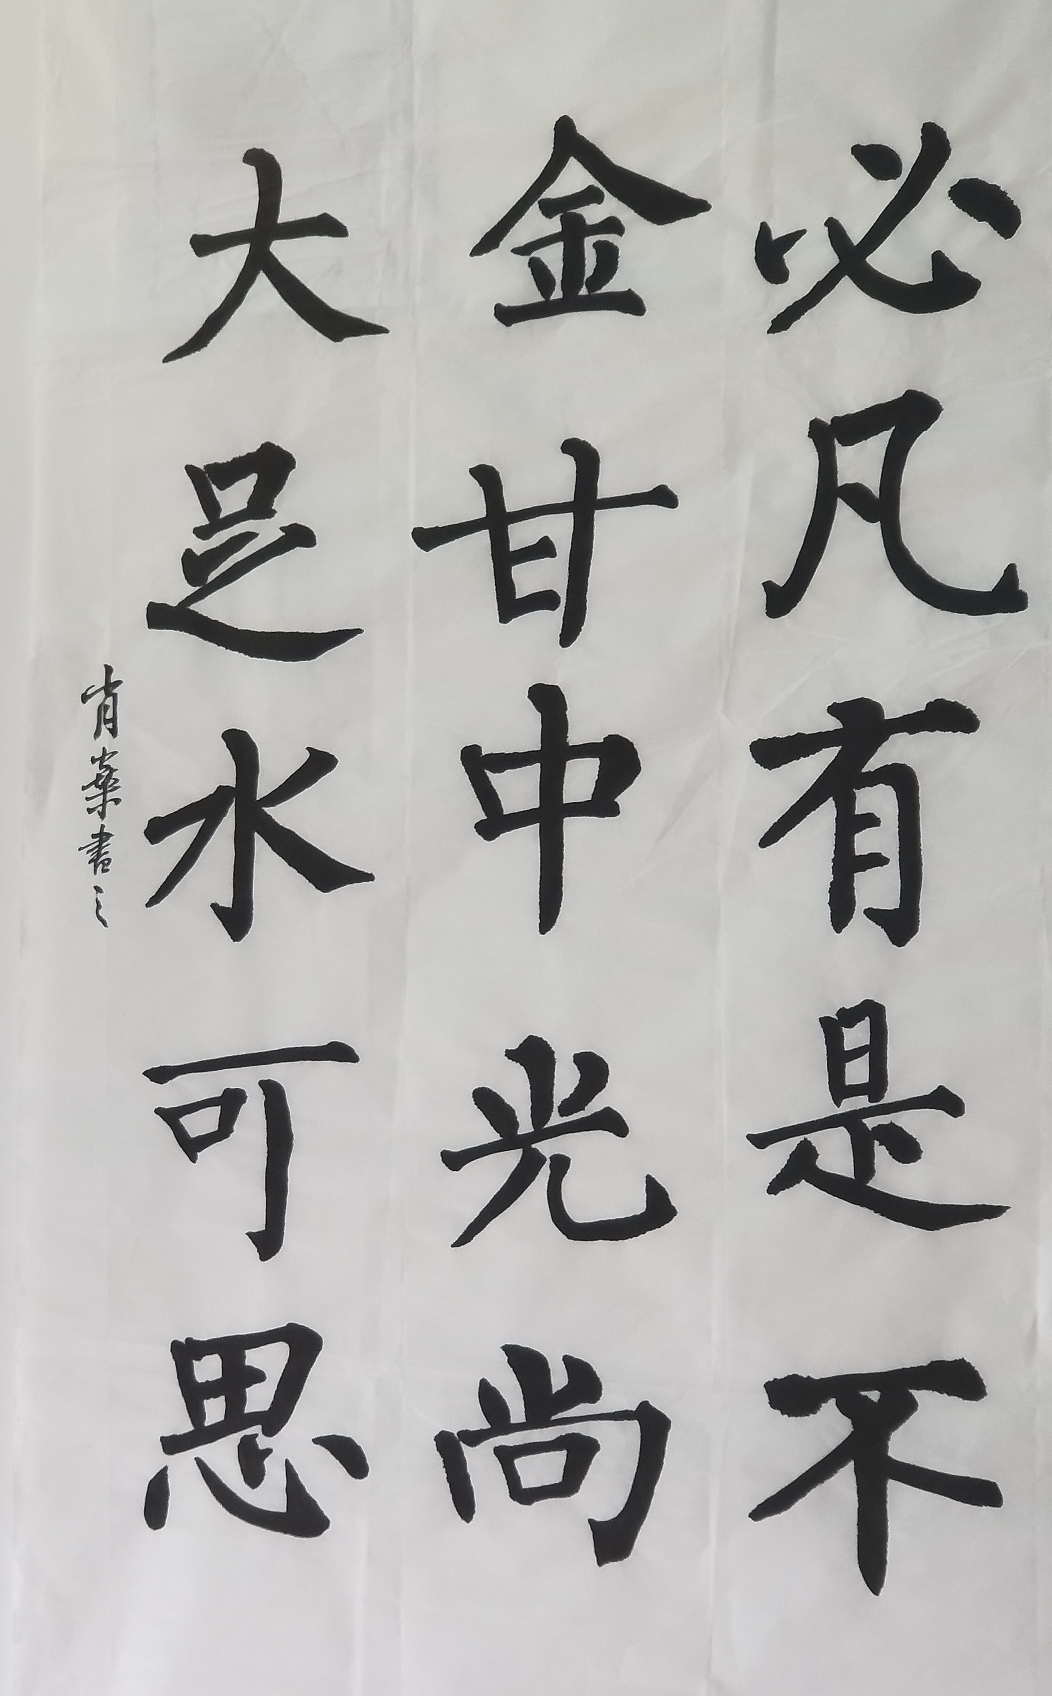 必凡有是不
金甘中光尚
大足水可思
肖燊書之